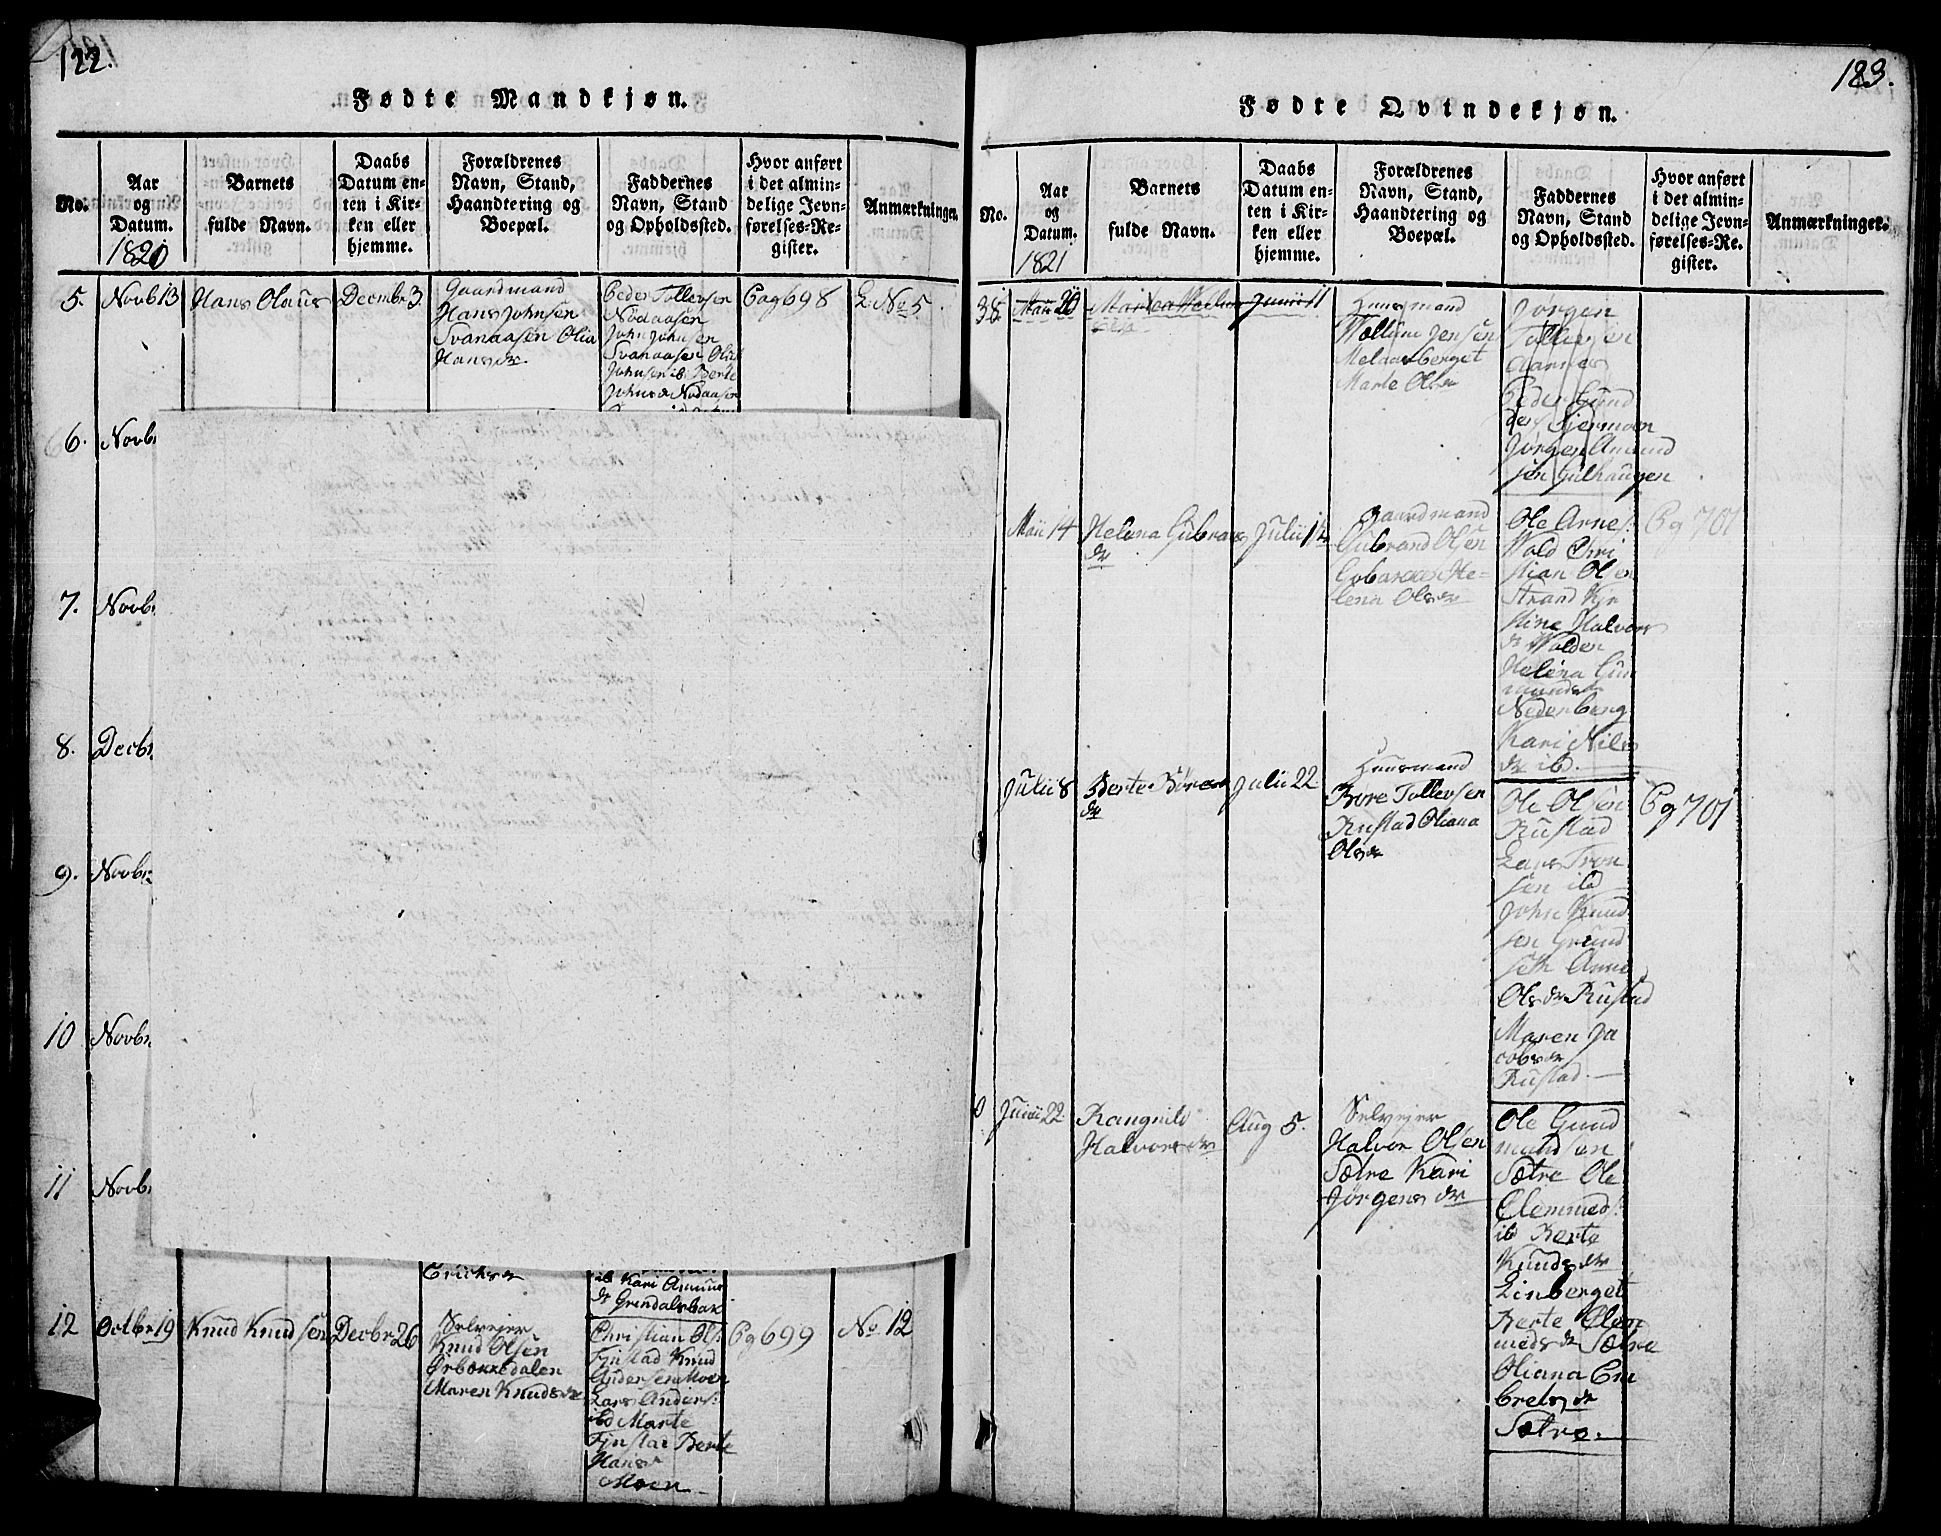 122.
Fødte Mandkjøn.
No.
Aar
og
Datum.
1820
Barnets
fulde Navn.
Daabs
Datum en-
ten i Kir-
ken eller
hjemme.
Forældrenes
Navn, Stand,
Haandtering og
Boepæl.
Faddernes
Navn, Stand
og Opholdssted.
Hvor anført
i det almin-
delige Jevn-
førelses-Re-
gister.
Anmærkninger.
5. Novb 13
Hans Olaus
Decmbr 3
Gaardmand
Hans Johnsen
Svanaasen Olia
Hansdr
Peder Tollevsen
Nodaasen
John Johnsen
Svanaasen Ola
Johnsen ib Berte
Johnsdr Nodaasen
Pag 698
L No 5
6. Novbr
7. Novbr
8. Decbr
9. Novbr
10 Novbr
11 Novbr
Ericksdr
ib Kari Amun
dr Grindalsbak
12 Octbr 19
Knud Knudsen
Decbr 26
Selveier
Knud Olsen
Ørbekkedalen
Maren Knudsdr
Christian Ols
Fjnstad Knud
Andersen Moen
Lars Anders:
ibd Marte
Fjnstad Berte
Hans
Moen
Pg 699
No 12
123.
Fødte Qvindekjøn.
No.
Aar
og
Datum.
1821
Barnets
fulde Navn.
Daabs
Datum en-
ten i Kir-
ken eller
hjemme.
Forældrenes
Navn, Stand,
Haandtering og
Boepæl.
Faddernes
Navn, Stand
og Opholdssted.
Hvor anført
i det almin-
delige Jevn-
førelses-Re.
gister.
Anmærkninger.
38 Maii 20
Junii 11
Huusmand
Wellum Jensen
Melaasberget
Marte Olsdr
Jørgen
Tollevsen
Aarnes
Peder Gund
ders Sjermoen
Jørgen Amund
sen Julhaugen
Maii 14
Helena Gubrans
dr
Julii 15
Gaardmand
Gubrand Olsen
Gobaraas He-
lena Olsdr
Ole Arnes:
Wold Chri
stian Olsen
Strand Kjr
stine Halvors
dr Wolden
Helena Gun
mundsdr
Nederberg
Kari Nils
dr ib.
Pg 701
Julii 8
Berte Børes
dr
Julii 22
Huusmand
Bore Tollevsen
Rustad Oliana
Olsdr
Ole Olsen
Rustad
Lars Tron
sen ibd
John Knud
sen Grund
seth Anne
Olsdr Rustad
Maren Ja
cobsdr
Rustad.
Pg 701
0 Junii 22
Rangnild
Halvorsdr
Aug 5.
Selveier
Halvor Olsen
Sætre Kari
Jørgensdr
Ole Gund
mundsen
Sætre Ole
Clemmeds:
ib Berte
Knudsdr
Linberget
Berte Clem
medsdr Sætre
Oliana Em
bretsdr
Sætre.